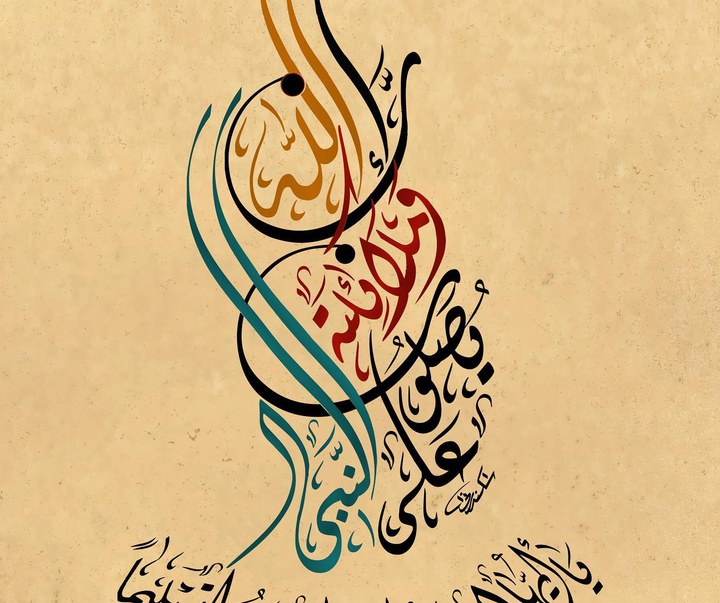 إِنَّ الله
وملائكته
يُصَلُّونَ
عَلَى النَّبِي
يا أيها
تسليما